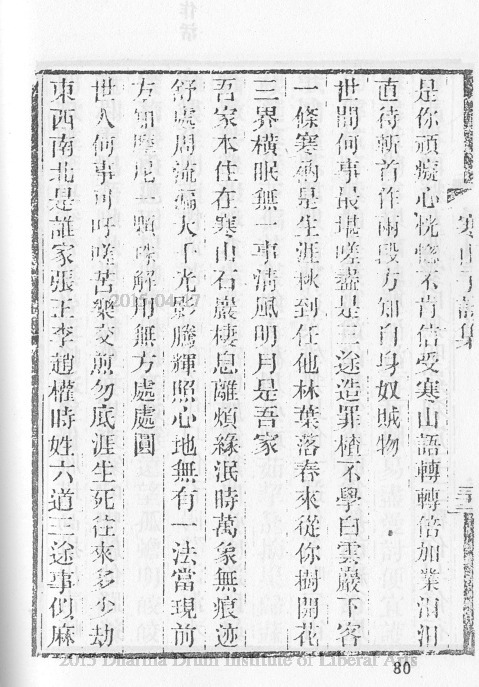 寒山子詩集
是你頑癡心恍惚不肯信受寒山語轉轉倍加業汩汩
直待斬首作兩段方知自身奴賊物
世間何事最堪嗟盡是三途造罪楂不學白雲巖下客
一條寒衲是生涯秋到任他林葉落春來從你樹開花
三界橫眠無一事清風明月是吾家
吾家本住在寒山石巖棲息離煩緣泯時萬象無痕迹
舒處周流徧大千光影騰輝照心地無有一法當現前
方知摩尼一顆珠解用無方處處圓
世人何事可吁嗟苦樂交煎勿底涯生死往來多少劫
東西南北是誰家張王李趙權時姓六道三途事似麻
2015.04.27
80
2015 Dharma Drum Institute of Liberal Arts